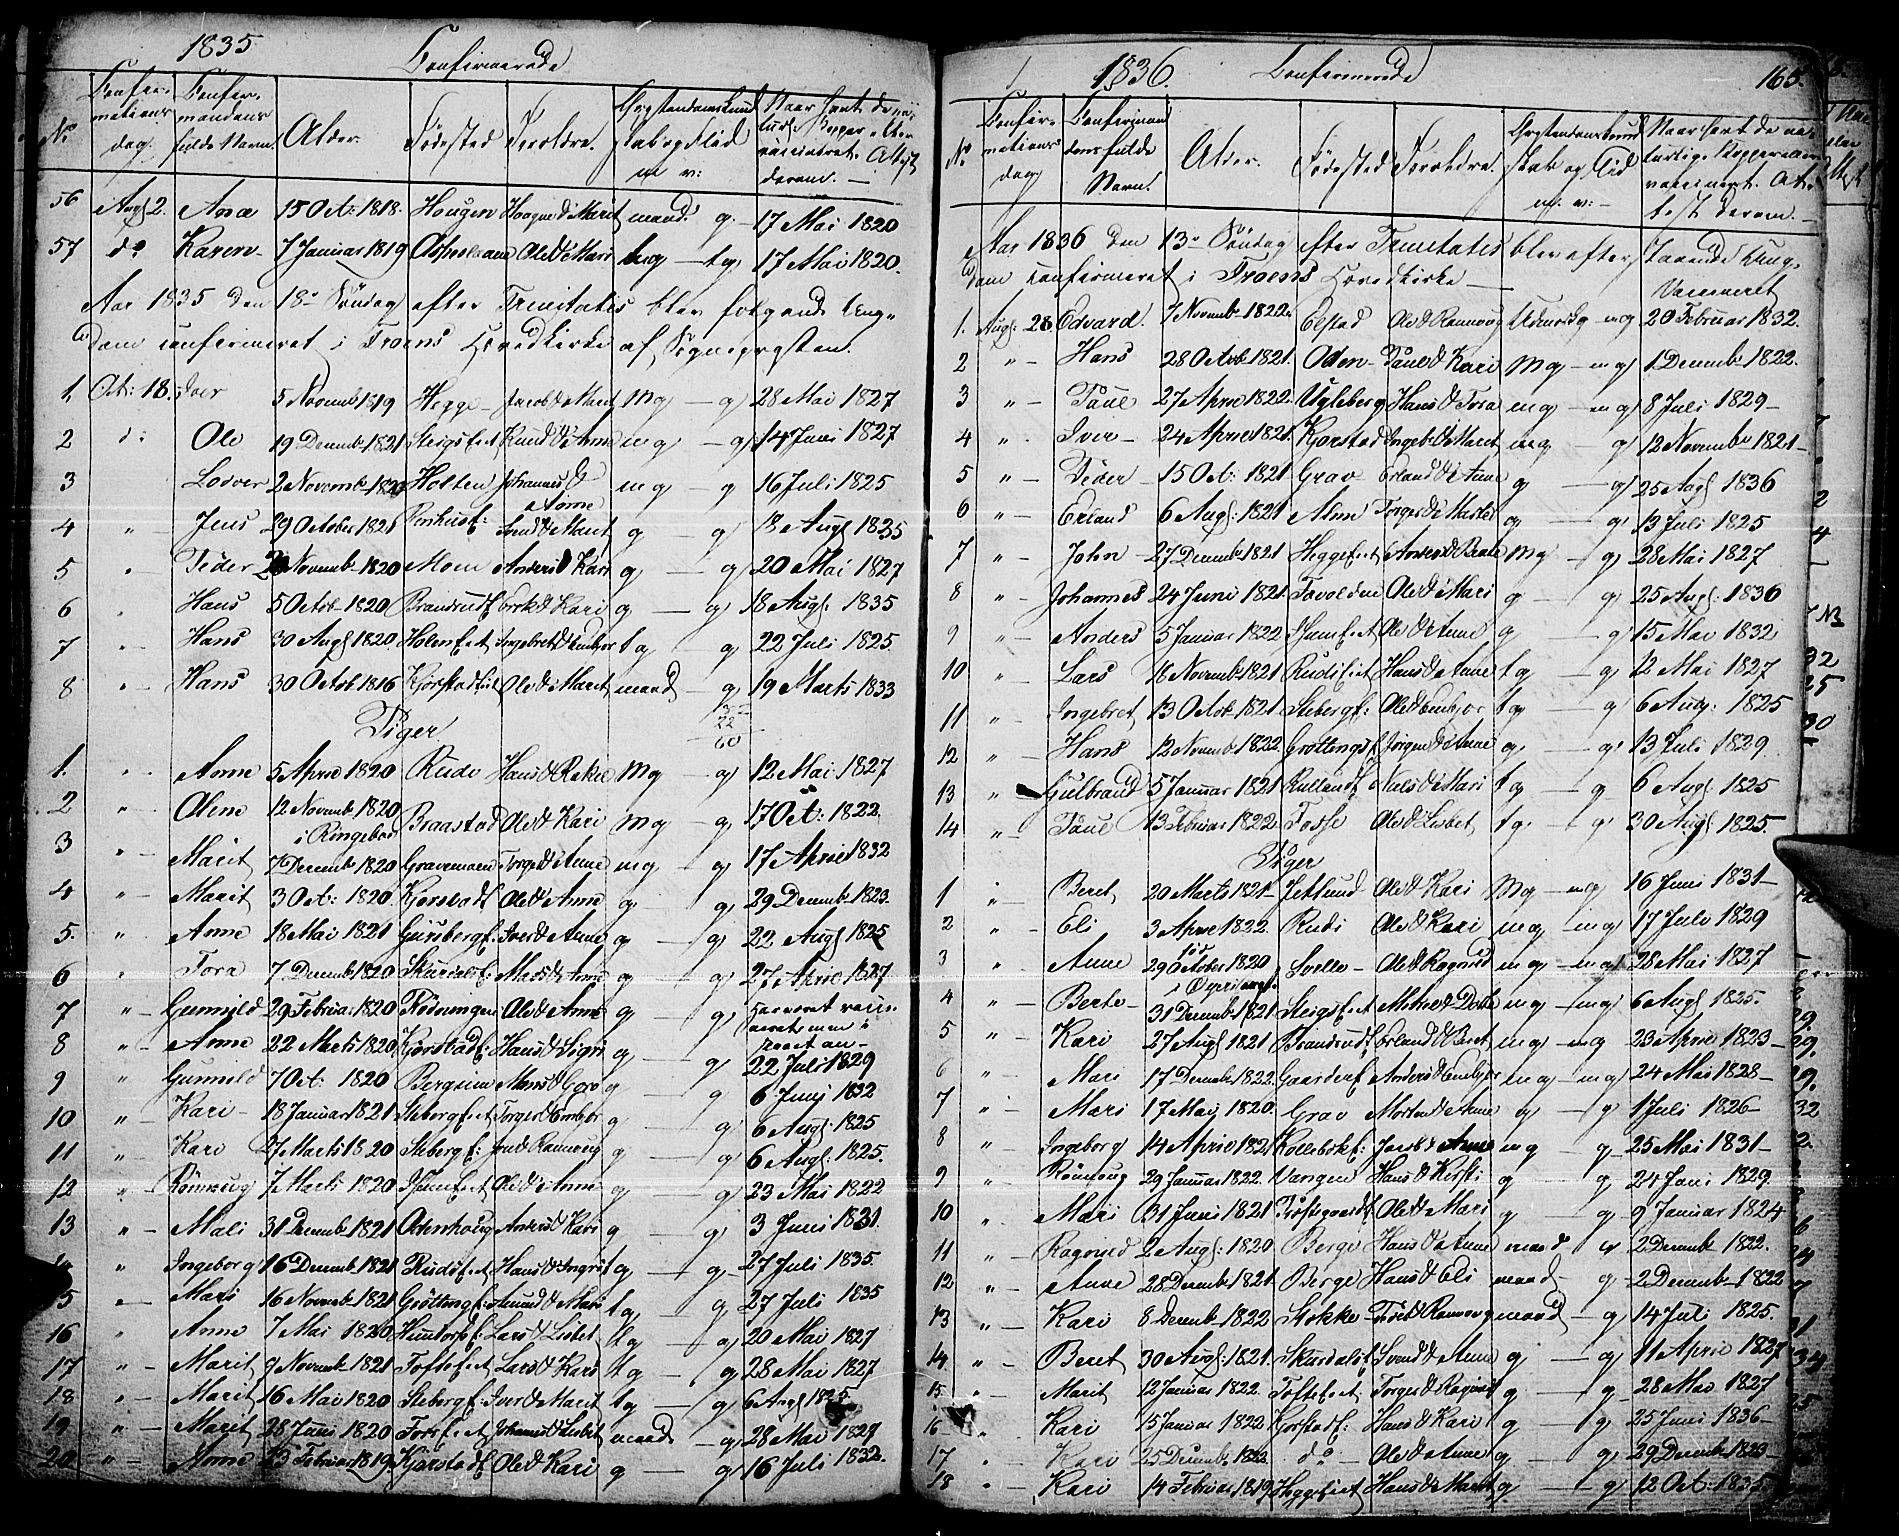 1835
Confirmerede
No Confirmations dag. Confirmandens fulde Navn. Alder. Födested Foreldre. Christendomskundskab og Flid m v: Naar havt de naturl: Kopper eller vaccineret. Attest derom.
56 Augs 2. Anne 15 Oct: 1818. Haugen Marit maad. g. 17 Mai 1820
57 do Karen 7 Januar 1819 Ole & Mari tg tg 17 Mai 1820.
Aar 1835 den 18de Söndag efter Trinitatis blev folgende Ung-
dom confirmeret i Froens Hovedkirke af Sognepræsten.
1. Oct: 18. Iver 5 Novemb 1819 Hegge Jacob & Marit Mg g 28 Mai 1827
2 do Ole 19 Decemb 1821 Steigs Eiet Knud & Anne mg g 14 Juni 1827
3 Lodver 2 Novemb Holten Johannes & Anne mg g 16 Juli 1825
4 " Jens 29 October 1821 Svend & Marit g g 18 Augs 1835
5 " Peder Novemb 1820 Moen Anders & Kari g g 20 Mai 1827
6 " Hans 5 Octob 1820 Brandrud & Kari g g 18 Augs: 1835
7 " Hans 30 Augs 1820 Holens Eiet Ingebret & Embjor tg g 22 Juli 1825
8 " Hans 30 Octob 1816 Kjorstad Ole & Marit maad g 19 Marts 1833
22
60
Piger
1. " Anne 5 April 1820 Rude Hans & Rakel Mg g 12 Mai 1827
2 " Olene 12 Novemb 1820 i Ringeboe Braastad Ole & Kari Mg g 17 Oct: 1822
3 " Marit Decemb 1820 Gravemoen Torger & Anne mg g 17 April 1832
4 " Marit 3 Oct: 1820 Kjorstad Ole & Anne g g 29 Decemb 1823
5. " Anne 18 Mai 1821 Iver & Anne g g 22 Augs 1825
6 " Tora 7 Decemb 1820 Skurdals E: Mads & Anne g g 27 April 1827
7 " Gunnild 29 Februar 1820 Flödningen Ole & Anne g g
8 " Anne 22 Marts 1820 Kjorstad E: Hans & Sigri g g 22 Juli 1829
9 " Gunnild 7 Oct: 1820 Bergum Hans & Goro g g 6 Juni 1832
10 " Kari 18 Januar 1821 Steberg Eiet Torger & Embjor g g 6 Augs: 1825
11 " Kari 27 Marts 1820 Steberg E: & Rannoug g g 6 Augs: 1825.
12 " Rönnoug 7 Marts 1820 Eiet Ole & Anne g g 23 Mai 1822
13 " Mali 31 Decemb 1821 Odenhoug Anders & Kari g g 3 Juni 1831
" Ingeborg 16 Decemb 1821 Ruds Eiet Hans & Ingri tg g 27 Juli 1835
5 " Mari 16 Novemb 1821 Grötting E: Amund & Mari tg g 27 Juli 1835
16 " Anne 7 Mai 1820 Lars & Lisbet tg g 20 Mai 1827
17 " Marit 9 Novemb 1821 Tofte Eiet Lars & Kari tg g 28 Mai 1827
18 " Marit 16 Mai 1820 Steberg E: Iver & Marit tg g 6 Augs 1825
19 " Marit 28 Juni 1820 Eiet Johannes & Lisbet maad g 28 Mai 1827
20 " Anne 13 Februar 1819 Kjorstad E Ole & Kari g g 16 Juli 1832.
1836.
Confirmerede
165.
No Confirmations dag Confirmandens fulde Navn. Alder. Födested Foreldre. Christendomskundskab og Flid m. v: Naar havt de naturlige Kopper eller vaccineret. Attest derom.
Aar 1836 den 13de Söndag efter Trinitatis blev efterfölgende Ung-
dom confirmeret i Froens Hovedkirke
Vaccineret
1. Augs: 28 Edvard. 7 Novemb 1822. Elstad Ole & Rannoug Udmærkg mg 20 Februar 1832.
2 " Hans 28 Octob 1821. Oden Paul & Kari Mg mg 1 Decemb 1822.
3 " Paul 27 April 1822. Ugleberg Hans & Tora mg mg 8 Juli 1829
4 " Iver 24 April 1821. Kjorstad Ingeb: & Marit mg g 12 Novembr 1821
5 " Peder 15 Oct: 1821 Grav Erland & Anne g g 25 Augs 1836
6 " Erland 6 Augs: 1821 Alme Torger & g g 13 Juli 1825
7 " John 27 Decemb 1821 Hegge Eiet Anders & Mg g 28 Mai 1827
8 " Johannes 24 Juni 1821 Ole & Mari g g 25 Augs: 1836
9 " Anders 5 Januar 1822 Eiet Ole & Anne g g 15 Mai 1832
10 " Lars 18 Novemb 1821 Ruds Eiet Hans & Anne tg g 12 Mai 1827
11 " Ingebret 13 Octob 1821 Steberg E: Ole & Embjor tg g 6 Aug: 1825
12 " Hans 12 Novemb 1822. Gröttings E Jörgen & Anne g g 13 Juli 1829
13 " Gulbrand 5 Januar 1821 Niels & Mari tg g 6 Augs. 1825
14 " Paul 13 Februar 1822 Fosse Ole & Lisbet tg g 30 Augs 1825.
Piger
1 " Beret 20 Marts 1821 Jetlund Ole & Kari Mg mg 16 Juni 1831
2 " Eli 3 April 1822. Rudi Ole & Kari mg mg 17 Juli 1829
3 " Anne 29 October 1820 Svelle Ole & Ragnild mg mg 28 Mai 1827
4 " Berte 31 Decemb 1821 Steigs Eiet & Dorte mg mg 6 Augs 1825.
5 " Kari 27 Augs 1821 Brandrud E Erland & Beret mg mg 23 April 1823
6 " Mari 17 Decemb 1822. Gaarden E Anders & Embjor mg mg 24 Mai 1828
7 " Mari 17 Mai 1820. Grav Morten & Anne g g 1 Juli 1826
8 " Ingeborg 14 April 1821 Jacob & Anne mg g 25 Mai 1831
9 " Rönnoug 29 Januar 1822. Vangen Hans & Kirsti g g 24 Juni 1829.
10 " Mari 31 Juni 1821 Ole & Mari g g 9 Januar 1824
11 " Ragnild 2 Augs: 1820 Berge Hans & Anne maad g 2 Decemb 1822.
12 " Anne 28 Decemb 1821. Berge Hans & Eli maad g 2 Decemb 1822
13 " Kari 8 Decemb 1822 Stokke & Rannoug maad g 14 Juli 1825.
14 " Beret 30 Augs: 1821. Skurdals E Svend & Anne g g 11 April 1827
15 " Marit 12 Januar 1822. Tofte Eiet Torger & Ragnild g g 28 Mai 1827
16 " Kari 15 Januar 1822 Kjorstad E: Hans & Kari g g 25 Juni 1836
17 " Kari 25 Decemb 1823. do Ole & Anne g g 29 Decemb 1823
18 " Kari 14 Februar 1819 Hegge Eiet Hans & Marit g g 12 Oct: 1835